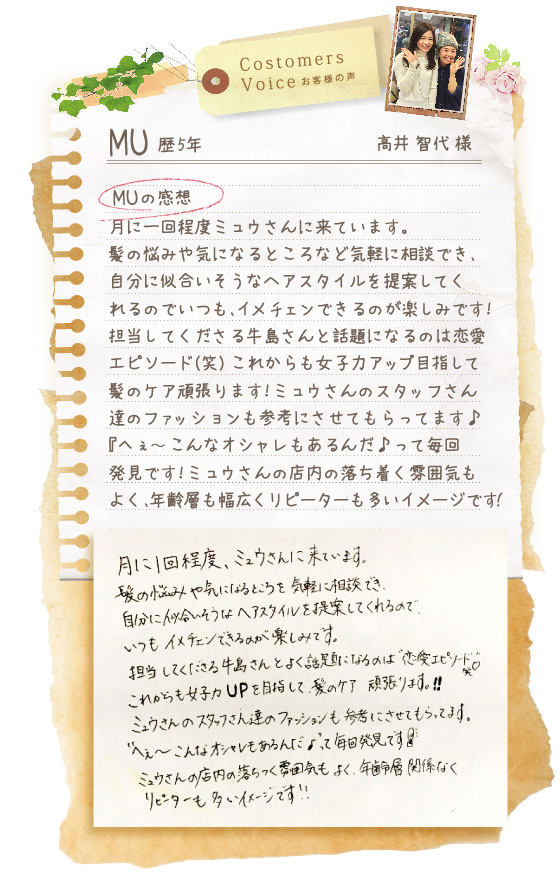 Costomers
Voice お客様の声
MU 歴5年
高井 智代 様
MUの感想
月に一回程度ミュウさんに来ています。
髪の悩みや気になるところなど気軽に相談でき、
自分に似合いそうなヘアスタイルを提案してく
れるのでいつも、イメチェンできるのが楽しみです!
担当してくださる牛島さんと話題になるのは恋愛
エピソード(笑) これからも女子力アップ目指して
髪のケア頑張ります!ミュウさんのスタッフさん
達のファッションも参考にさせてもらってます♪
『へぇ〜こんなオシャレもあるんだ♪って毎回
発見です!ミュウさんの店内の落ち着く雰囲気も
よく、年齢層も幅広くリピーターも多いイメージです!
月に1回程度、ミュウさんに来ています。
髪の悩みや気になるところを気軽に相談でき、
自分に似合いそうなヘアスタイルを提案してくれるので、
いつもイメチェンできるのが楽しみです。
担当してくださる牛島さんとよく話題になるのは"恋愛エピソード"♡笑
これからも女子力UPを目指して、髪のケア 頑張ります。!!
ミュウさんのスタッフさん達のファッションも参考にさせてもらってます。
"へぇ〜こんなオシャレもあるんだ♪"って毎回発見です!
ミュウさんの店内の落ちつく雰囲気もよく、年齢層関係なく
リピーターも多いイメージです!!